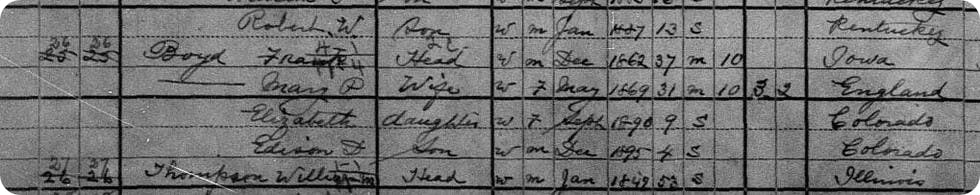 Robert W. Son W m Jan 1887 13 S Kentucky
26 26 Boyd Frank Head W m Dec 1862 37 m 10 Iowa
Mary P Wife W F May 1869 31 m 10 3 2 England
Elizabeth daughter W F Sept 1890 9 S Colorado
Edison F Son W m Dec 1895 4 S Colorado
27 27 Thompson William Head W m Jan 1849 S Illinois